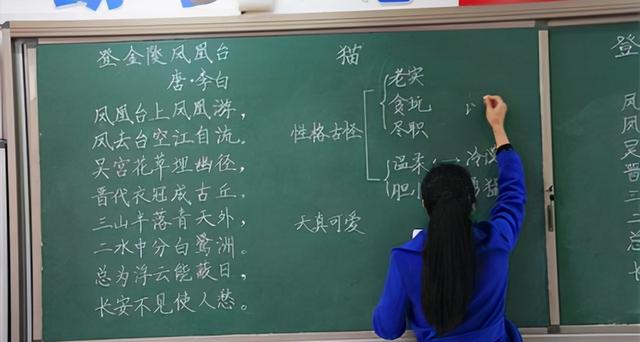 登金陵凤凰台
唐·李白
凤凰台上凤凰游,
凤去台空江自流。
吴宫花草埋幽径,
晋代衣冠成古丘。
三山半落青天外,
二水中分白鹭洲。
总为浮云能蔽日,
长安不见使人愁。
猫
性格古怪
老实
贪玩
尽职
温柔 → 冷
胆小 猛
天真可爱
登
凤
凤
吴
晋
三
二
总
长